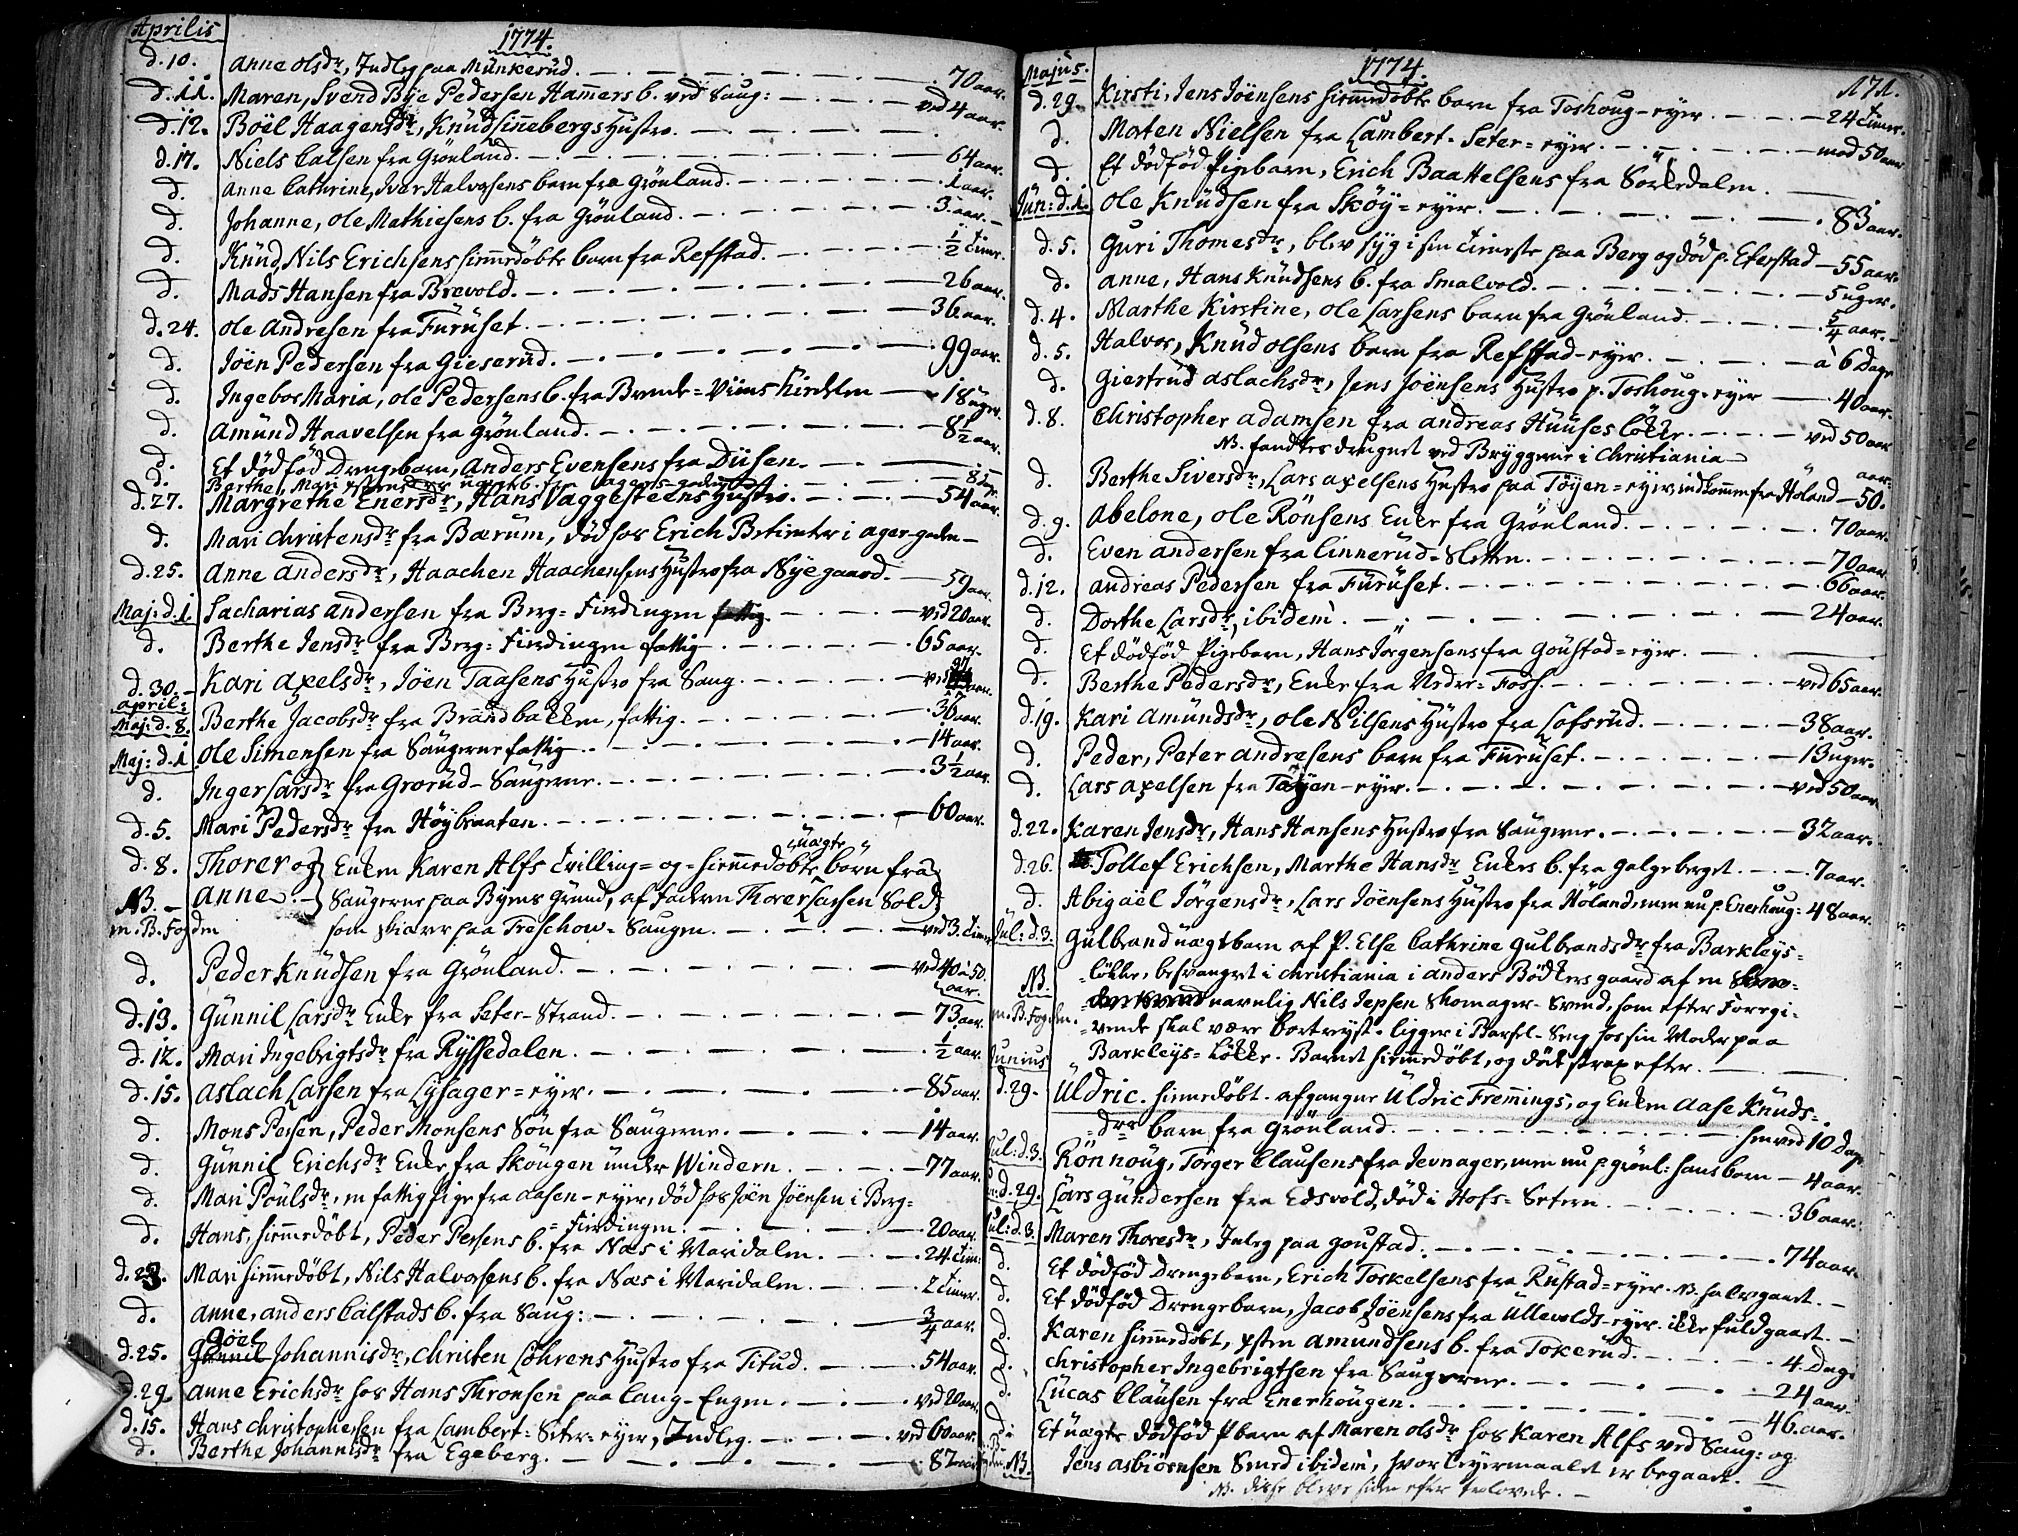 Aprilis 1774.
d. 10. Anne Olsdr, Indleg paa Münkerüd. 70 aar.
d. 11. Maren, Svend Bye Pedersen Hamers b. ved Saug: ved 4 aar.
d. 12. Boël Haagensdr, Knüd Sinnebergs Hustro.
d. 17. Niels Calsen fra Grönland. 64 aar.
d. Anne Cathrine, Iver Halvorsens barn fra Grönland. 1 aar.
d. Johanne, Ole Mathiesens b. fra Grönland. 3 aar.
d. Knüd, Nils Erichsens hiemedöbte barn fra Refstad. ½ timer.
d. Mads Hansen fra Brevold. 26 aar.
d. 24. Ole Andresen fra Fürüset. 36 aar.
d. Jöen Pedersen fra Gieserüd. 99 aar.
d. Ingebor Maria, Ole Pedersens b. fra Brende= 18 uger.
d. Amünd Haavelsen fra Grönland. 8½ aar.
d. Et dödföd Drengebarn, Anders Evensens fra Disen.
d. Berthe, Mari
d. 27. Margrethe Enersdr, Hans Vaggesteens Hustro. 54 aar.
d. Mari Christensdr fra Bærum, död hos Erich i ager-gaden
d. 25. Anne Andersdr, Haachen Haachensens Hustro fra Nyegaard. 59 aar.
Maj: d. 1. Sacharias Andersen fra Berg= Fierdingen fattig. ved 20 aar.
d. Berthe Jensdr fra Berg= Fierdingen fattig 65 aar.
d. 30. april: Kari Axelsdr, Jöen Taasens Hustro fra Saug. ved aar.
Maj: d. 8. Berthe Jacobsdr fra Brandbakken, fattig. 36 aar.
Maj: d. 1 Ole Simensen fra Saugerne fattig 14 aar.
d. Inger Larsdr fra Grorüd- Saugerne. 3½ aar.
d. 5. Mari Pedersdr fra Höybraaten. 60 aar.
uægte
d. 8. Thorer og Enken Karen Alfs tvilling= og= hiemedöbte börn fra
NB. Anne Saugerne paa Byens Grund, af faderen Thorer Larsen Sold
m. B. Fogden som skiærer paa Treschow= Saugen. ved 3. timer
d. Peder Knüdsen fra Grönland. ved 40 à 50 aar.
d. 13. Günnil Larsdr Enke fra Seter- Strand. 73 aar.
d. 12. Mari Ingebrigtsdr fra Ryssedalen. ½ aar.
d. 15. Aslach Larsen fra Lysager= eyer. 85 aar.
d. Mons Persen, Peder Monsens Sön fra Saugerne. 14 aar.
d. Günnil Erichsdr Enke, fra Skougen under Windern. 77 aar.
d. Mari Poulsdr, en fattig pige fra Aasen- eyer, död hos Jöen Jöensen i Berg=
= Fierdingen. 20 aar.
d. Hans, hiemedöbt, Peder Persens b. fra Næs i Maridalen. 24 tim:
d. 23. Mari hiemedöbt, Nils Halvorsens b. fra Næs i Maridalen. 2 timer.
d. Anne, Anders Calstads b. fra Saug: ¾ aar.
Göel
d. 25. Günnil Johannisdr, Christen Löhrens Hustro fra Titud. 54 aar.
d. 29. Anne Erichsdr hos Hans Thronsen paa Lang- Engen. ved 20 aar.
d. 15. Hans Christophersen fra Lambert= Seter= eyer, Indleg. ved 60 aar.
d. Berthe Johannisdr fra Egeberg. 82 aar
Majus. 1774. 171.
d. 29. Kirsti, Jens Jöensens hiemedöbte barn fra Toshoug- eyer. 24 timer.
d. Morten Nielsen fra Lambert- Seter= eyer. mod 50 aar
d. Et dödföd Pigebarn, Erich Baattelsens fra Sörkedalen.
Jün: d. 1. Ole Knüdsen fra Sköy= eyer. 83 aar.
d. 5. Guri Thomesdr, blev syg i sin tieneste paa Berg og död p. Eterstad 55 aar.
d. Anne, Hans Knüdsens b. fra Smalvold. 5 uger.
d. 4. Marthe Kirstine, Ole Larsens barn fra Grönland. 5/4 aar.
d. 5. Halvor, Knüd Olsens barn fra Refstad- eyer. a 6 Dage
d. Giertrüd Aslachsdr, Jens Jöensens Hustro p. Toshoug- eyer 40 aar.
d. 8. Christopher Adamsen fra Andreas Huuses lökke. ved 50 aar
NB. fandtes drugnet ved Bryggerne i Christiania
d. Berthe Siversdr, Lars Axelsens Hustro paa Töyen= eyer, indkommen fra Höland 50. aar.
d. 9. Abelone, Ole Rönsens Enke fra Grönland. 70 aar.
d. Even Andersen fra Linnerud- Sletten. 70 aar.
d. 12. Andreas Pedersen fra Fürüset. 66 aar.
d. Dorthe Larsdr, ibidem. 24 aar.
d. Et dödföd Pigebarn, Hans Jörgensens fra Goüstad= eyer.
d. Berthe Pedersdr, Enke fra Nedre= Foss. ved 65 aar.
d. 19. Kari Amündsdr, Ole Nilsens Hustro fra Lofsrüd. 38 aar.
d. Peder, Peter Andresens barn fra Fürüset. 13 uger.
d. Lars Axelsen fra Töyen- eyer. ved 50 aar.
d. 22. Karen Jensdr, Hans Hansens Hustro fra Saugerne. 32 aar.
d. 26. Tollef Erichsen, Marthe Hansdr Enkes b. fra Galgeberget. 7 aar.
d. Abigaël Jörgensdr, Lars Jöensens Hustro fra Höland, men nu p. Enerhoug= 48 aar.
Jül: d. 3. Gulbrand uægte barn af P. Else Cathrine Gulbrandsdr fra Barkleys=
NB. =lökke, besvangret i Christiania i Anders Bödkers gaard af en
m. B. Fogden. navnlig Nils Jepsen Skomager- Svend, som efter Foregi=
=vende skal være bortreyst. ligger i Barsel- Seng hos sin Moder paa
Junius Barkleys= Lökke. Barnet hiemedöbt, og döde strax efter.
d. 29. Üldric. hiemedöbt. afgangne Üldric Fremings, og Enken Aase Knüds=
=drs barn fra Grönland. henved 10 dage
Jul: d. 3. Rönnoüg, Torger Clausens fra Jevnager, men nu p. Grönl: hans barn 4 aar.
d. 29. Lars Gündersen fra Edsvold, död i Hofs= Setern. 36 aar.
Jul: d. 3. Maren Thoresdr, Inleg paa Goustad. 74 aar.
d. Et dödföd Drengebarn, Erich Torkelsens fra Rüstad= eyer. NB. halvgaaet.
d. Et dödföd Drengebarn, Jacob Jöensens fra Üllevolds- eyer. ikke fuldgaaet.
d. Karen hiemedöbt, Amundsens b. fra Tokerüd. 4 Dage
d. Christopher Ingebrigtsen fra Saugerne. 24 aar.
d. Lücas Clausen fra Enerhougen. 46. aar.
d. Et uægte dödföd Pbarn af Maren Olsdr hos Karen Alfs ved Saug: og
NB. Jens Asbiörnsen Smed ibidem, hvor leyermaalet er begaaet.
NB. disse bleve siden efter trolovede.